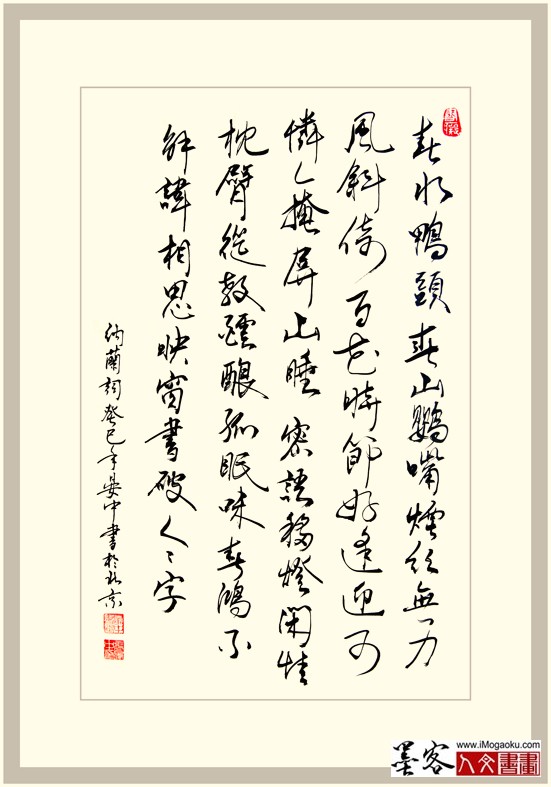 春水鴨頭春山鸚嘴煙絲無力
風斜倚百花時節好逢迎可
憐人掩屏山睡密語移燈閑情
枕臂從教醞釀孤眠味春鴻不
解諱相思映窗書破人人字
納蘭詞癸巳年晏中書於北京
墨客 www.iMogaoku.com
人文書畫